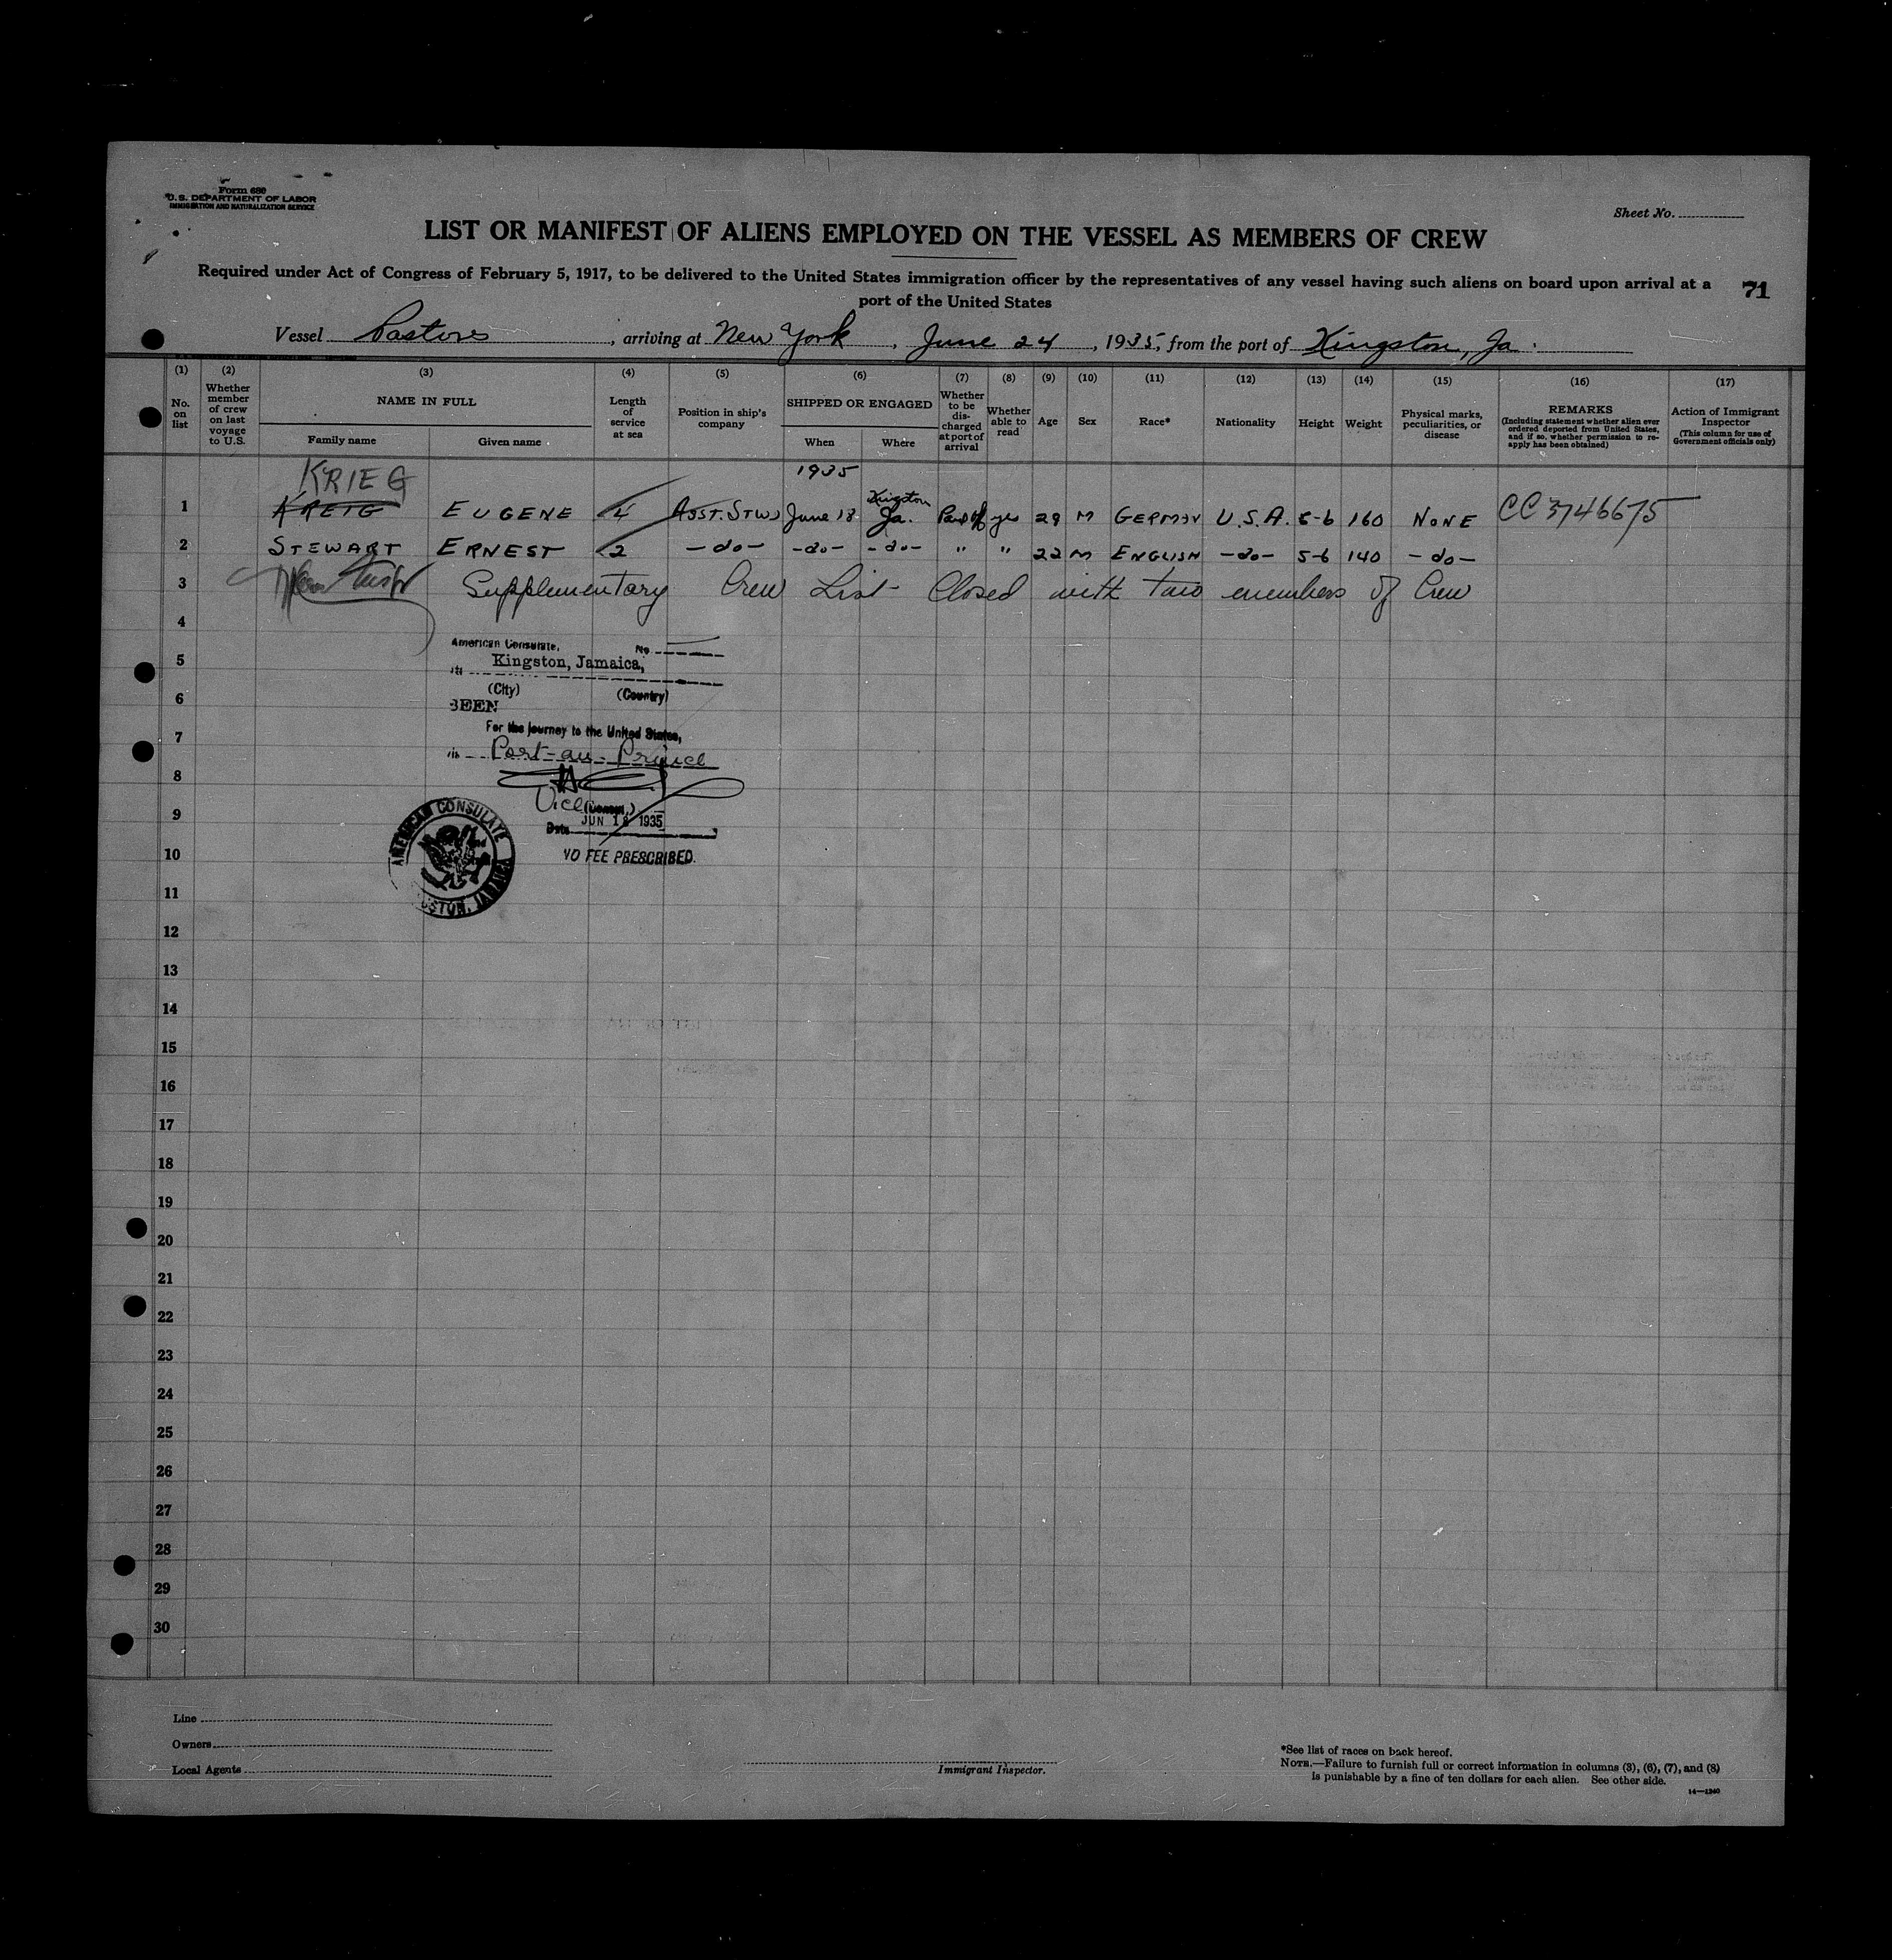 Form 680
U.S. DEPARTMENT OF LABOR
IMMIGRATION AND NATURALIZATION SERVICE
Sheet No.
LIST OR MANIFEST OF ALIENS EMPLOYED ON THE VESSEL AS MEMBERS OF CREW
Required under Act of Congress of February 5, 1917, to be delivered to the United States immigration officer by the representatives of any vessel having such aliens on board upon arrival at a
port of the United States
71
Vessel Pastores, arriving at New York, June 24, 1935, from the port of Kingston, Ja.
(1) (2) (3) (4) (5) (6) (7) (8) (9) (10) (11) (12) (13) (14) (15) (16) (17)
No. on list
Whether member of crew on last voyage to U.S.
NAME IN FULL
Family name
Given name
Length of service at sea
Position in ship's company
SHIPPED OR ENGAGED
When
Where
Whether to be discharged at port of arrival
Whether able to read
Age
Sex
Race*
Nationality
Height
Weight
Physical marks, peculiarities, or disease
REMARKS
(Including statement whether alien ever ordered deported from United States, and if so, whether permission to re-apply has been obtained)
Action of Immigrant Inspector
(This column for use of Government officials only)
KRIEG 1935
1 KREIG EUGENE 4 ASST. STWD June 18 Kingston Ja. Paid off yes 29 M GERMAN U.S.A. 5-6 160 NONE CC 3746675
2 STEWART ERNEST 2 -do- -do- -do- " " 22 M ENGLISH -do- 5-6 140 -do-
3 Supplementary Crew List Closed with two members of Crew
4
5
6
7
8
9
10
11
12
13
14
15
16
17
18
19
20
21
22
23
24
25
26
27
28
29
30
American Consulate, No
Kingston, Jamaica,
(City) (Country)
SEEN
For the journey to the United States,
Port-au-Prince
Vice (Consul.)
Date JUN 18 1935
NO FEE PRESCRIBED.
AMERICAN CONSULATE
KINGSTON, JAMAICA
Line
Owners
Local Agents
Immigrant Inspector.
*See list of races on back hereof.
NOTE.—Failure to furnish full or correct information in columns (3), (6), (7), and (8)
is punishable by a fine of ten dollars for each alien. See other side.
14—1240